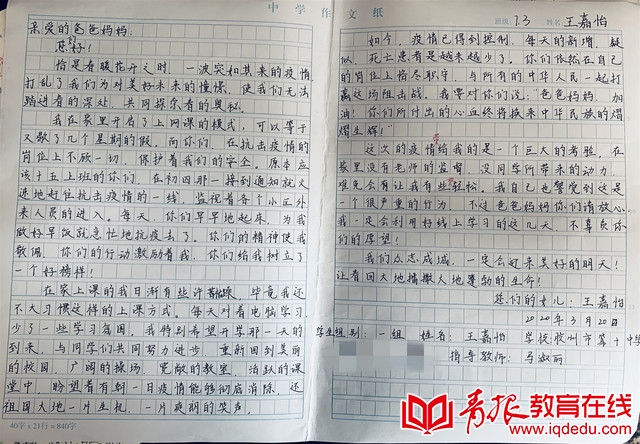 中 学 作 文 纸
班级: 7.3 姓名 王嘉怡
亲爱的爸爸妈妈:
您好!
恰是春暖花开之时,一波突如其来的疫情
打乱了我们为对美好未来的憧憬,使我们无法
踏进春的深处,共同探尔春的奥秘。
我在家里开启了上网课的模式,可以等于
又歇了几个星期的假。而你们,在抗击疫情的
岗位上不顾一切,保护着我们的安全。原本应
该十五上班的你们,在初四那一接到通知就火
速地赶往抗击疫情的一线,监视着各个小区外
来人员的进入。每天,你们早早地起床,为我
做好早饭就急忙地抗疫去了。你们的精神使我
敬佩,你们的行动激励着我,你们给我树立了
一个好榜样!
在家上课的我日渐有些许
,毕竟我还
不大习惯这样的上课方式。每天对着电脑学习
少了一些学习氛围,我特别希望开学那一天的
到来,与同学们共同努力进步,重新回到美丽
的校园,广阔的操场,宽敞的教室,活跃的课
堂中,盼望着有朝一日疫情能够彻底消除,还
祖国大地一片生机,一片爽朗的笑声。
40字×21行=840字
如今,疫情已得到控制,每天的新增,疑
似,死亡患者是越来越少了。你们依然在自己
的岗位上恪尽职守,与所有的中华人民一起打
赢这场阻击战。我要对你们说:“爸爸妈妈,加
油!你们所付出的心血终将换来中华民族的熠
熠生辉!”
这次的疫情给我的是一个巨大的考验,在
家里没有老师的监督,没同学所带来的动力,
难免会有让我有些轻松。我自己也警觉到这是
一个很严重的行为,不过爸爸妈妈你们请放心,
我一定会利用好线上学习的这几天,不辜负你
们的愿望!
我们众志成城,一定会迎来美好的明天!
让春回大地播撒人地蓬勃的生命!
您们的女儿:王嘉怡
2020年3月20日
学生组别:一组 姓名:王嘉怡 学校胶州市第十中学
指导教师:马淑丽
青报教育在线
www.iqdedu.com